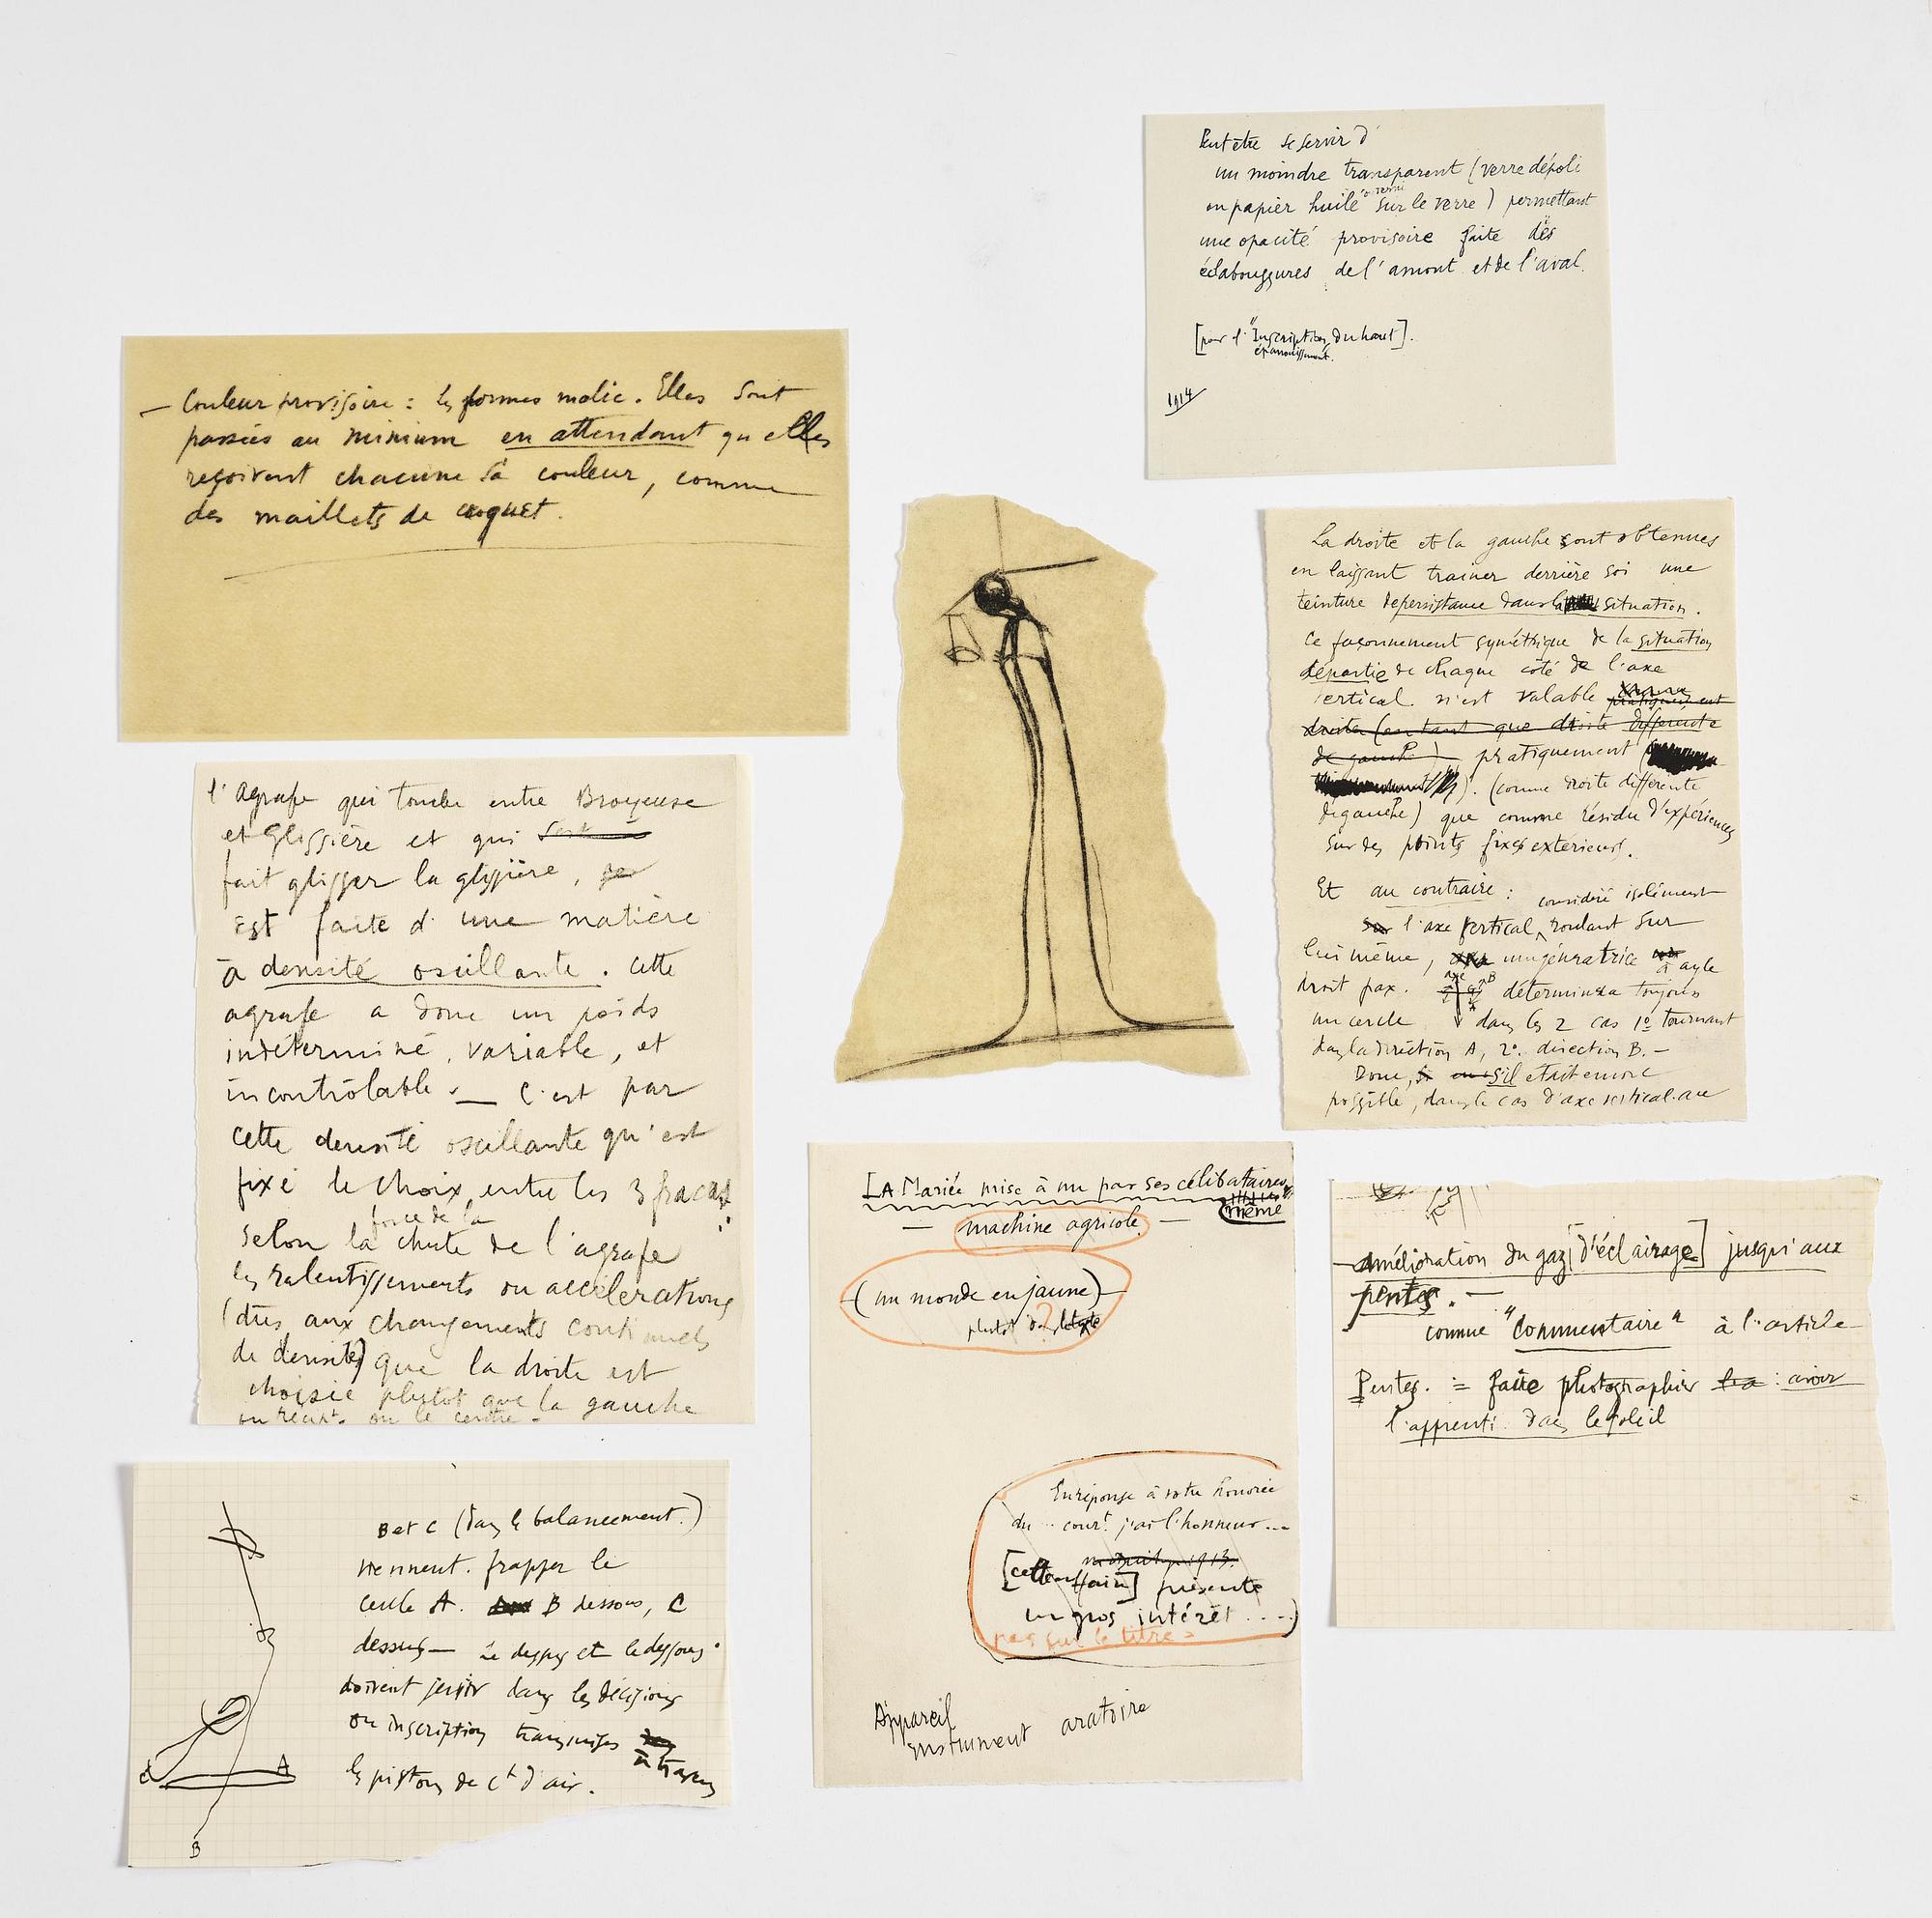 Peut être se servir d'
un moindre transparent (verre dépoli
ou papier huilé ou verni sur le verre) permettant
une opacité provisoire faite des
éclaboussures de l'amont et de l'aval.
[pour l'"Inscription du haut].
épanouissement.
1914
— Couleur provisoire : les formes malic. Elles sont
passées au minium en attendant qu'elles
reçoivent chacune sa couleur, comme
des maillets de croquet.
La droite et la gauche sont obtenues
en laissant trainer derrière soi une
teinture de persistance dans la situation.
Ce façonnement symétrique de la situation
départie de chaque côté de l'axe
vertical n'est valable pratiquement
droite (en tant que droite différente
de gauche) pratiquement
). (comme droite différente
de gauche) que comme résidu d'expériences
sur des points fixes extérieurs.
Et au contraire : considéré isolément
l'axe vertical, roulant sur
lui même, une génératrice à angle
droit par ex. axe A B déterminera toujours
un cercle dans les 2 cas 1º tournant
dans la direction A, 2º direction B. —
Donc, s'il était encore
possible, dans le cas d'axe vertical au
l'agrafe qui tombe entre Broyeuse
et Glissière et qui
fait glisser la glissière,
est faite d'une matière
à densité oscillante. Cette
agrafe a donc un poids
indéterminé, variable, et
incontrôlable. — C'est par
cette densité oscillante qu'est
fixé le choix entre les 3 fracas
:
selon la force de la chute de l'agrafe
les ralentissements ou accélérations
(dus aux changements continuels
de densité) que la droite est
choisie plutot que la gauche
ou le centre.
LA Mariée mise à nu par ses célibataires,
même
— machine agricole. —
— (un monde en jaune) —
plutôt ? texte
En réponse à votre honorée
du .. cour.t j'ai l'honneur ...
1913.
[cette affaire] présente
un gros intérêt ....)
pas sur le titre
Appareil
instrument aratoire
— Amélioration du gaz [d'éclairage] jusqu'aux
pentes. —
comme "Commentaire" à l'article
Pentes. = faire photographier : avoir
l'apprenti dans le soleil
B et C (dans le balancement.)
viennent frapper le
cercle A. B dessous, C
dessus — Le dessus et le dessous
doivent jouer dans les décisions
ou inscription transmises à travers
les pistons de ct d'air.
C
A
B